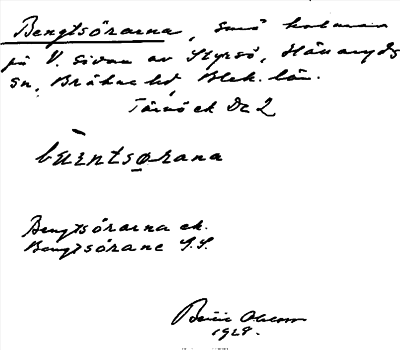 Bengtsörarna, små holmar
på V. sidan av Styrsö, Hällaryds
sn, Bräkne hd, Blek. län.
Tärnö ek Dr 2
Bengtsörarna ek.
Bengtsörane S.S.
1928.